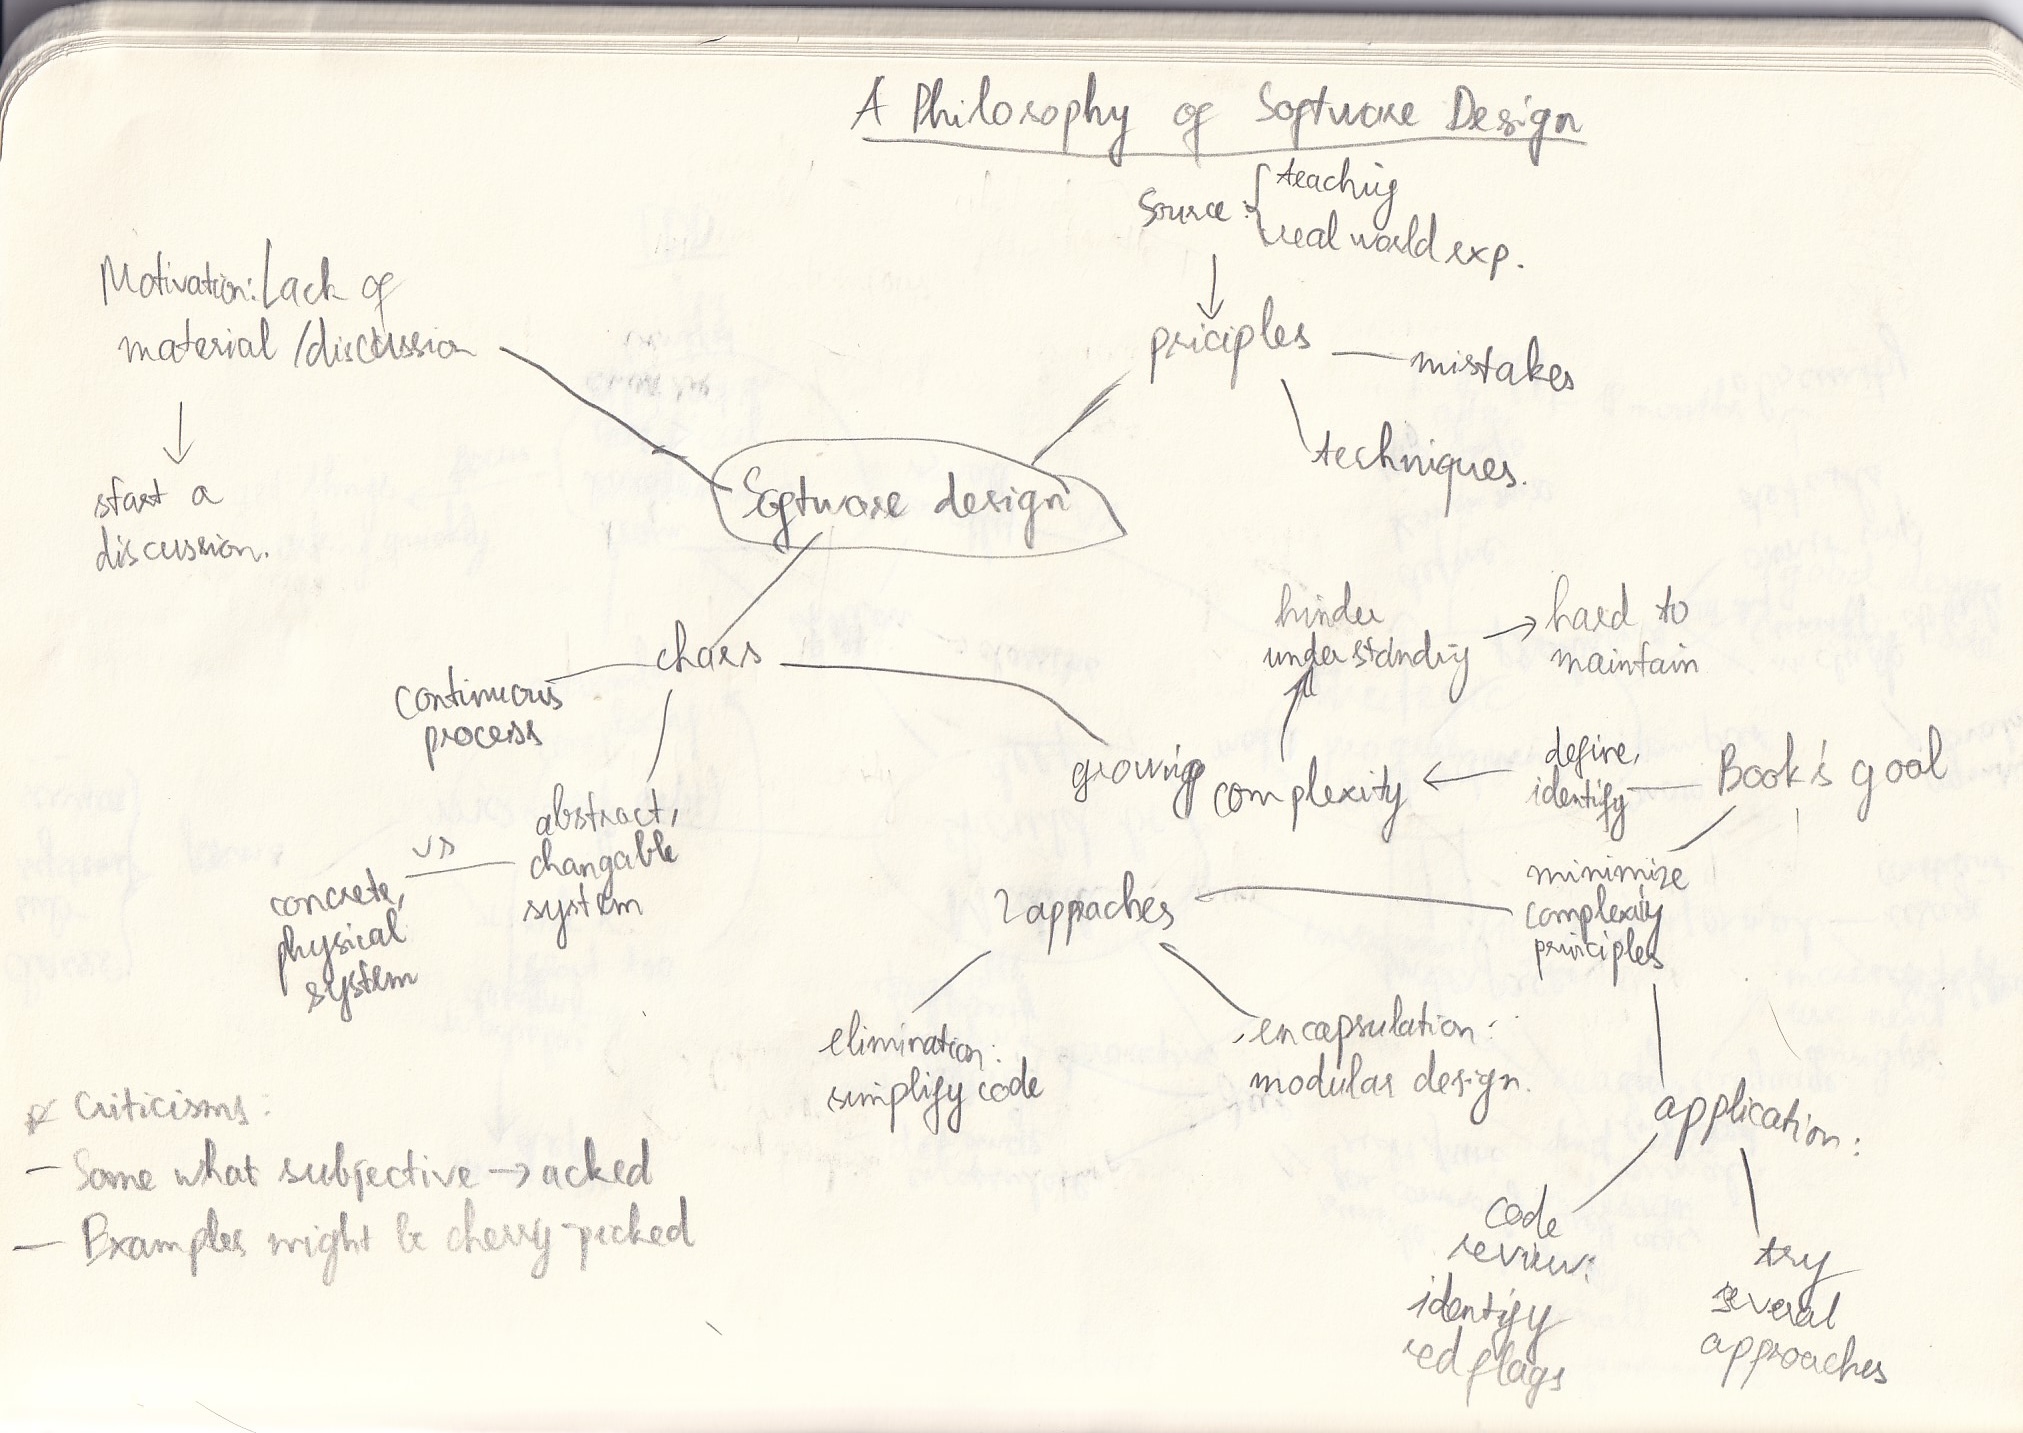 A Philosophy of Software Design
Source: { teaching
real world exp.
Motivation: Lack of
material /discussion
start a
discussion.
priciples
mistakes
techniques.
Software design
chars
continuous
process
abstract,
changable
system
vs
concrete,
physical
system
growing
complexity
hinder
understanding
hard to
maintain
define,
identify
Book's goal
minimize
complexity
principles
2 appraches
elimination:
simplify code
encapsulation:
modular design.
application:
code
review:
identify
red flags
try
several
approaches
Criticisms:
- Some what subjective → acked
- Examples might be cherry-picked